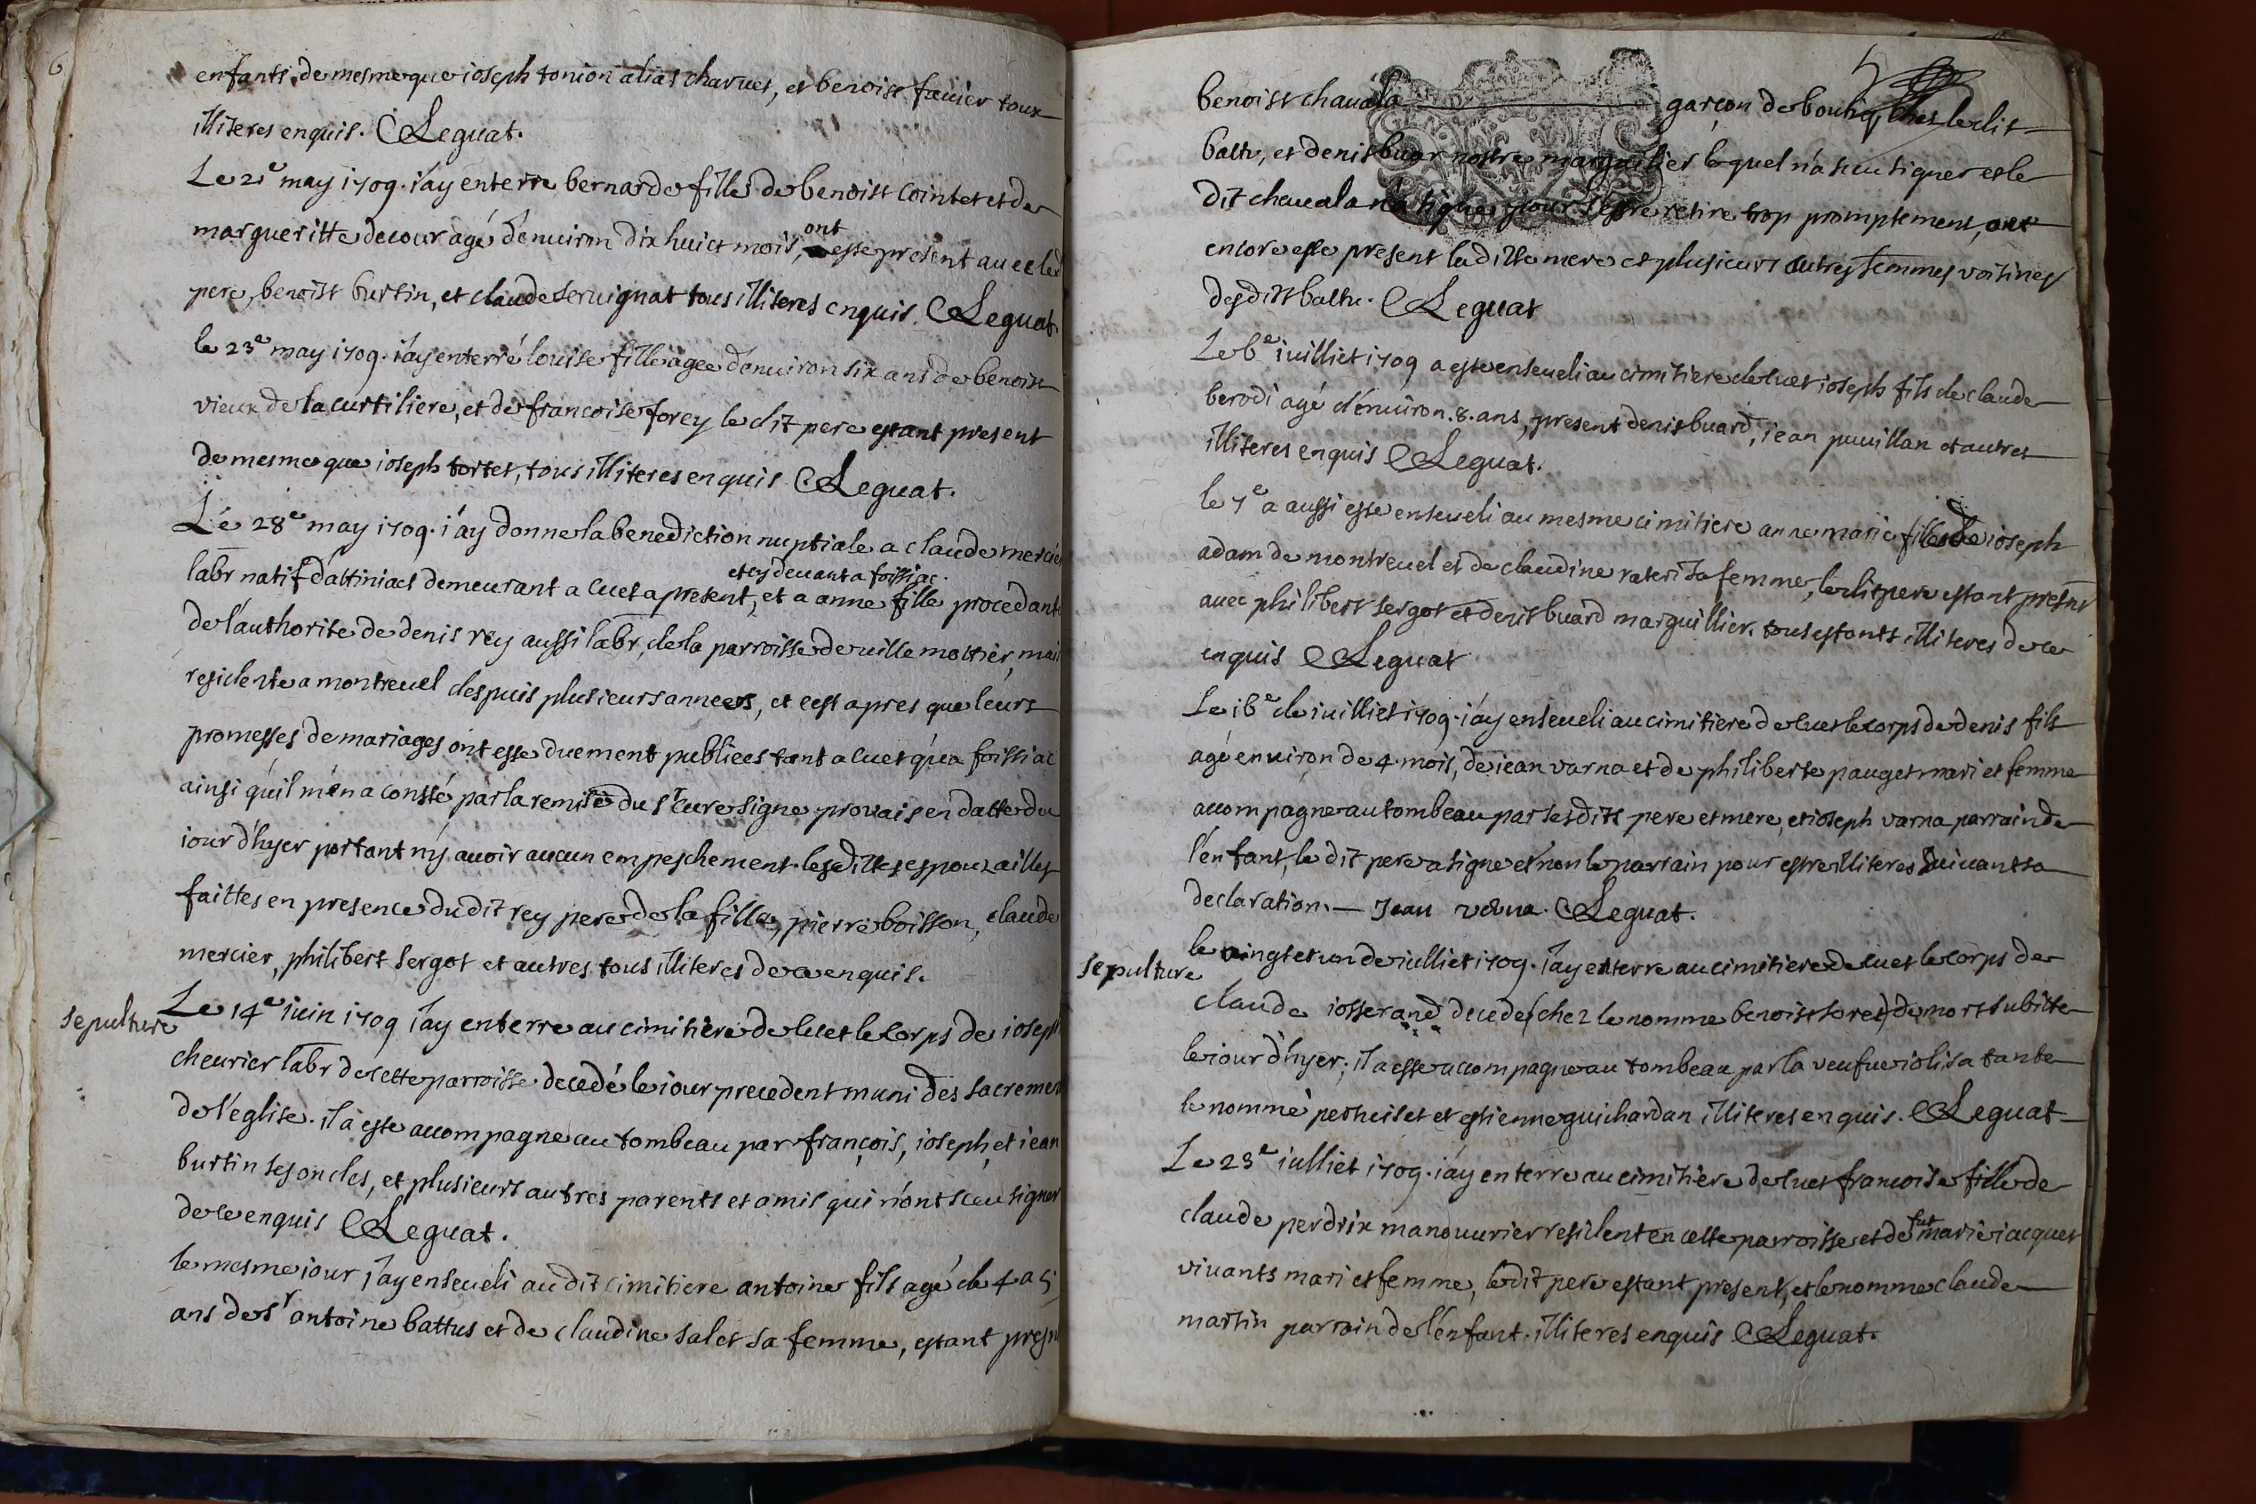 6
enfants, de mesme que ioseph tonion alias charuet, et benoist fauier tous
illiteres enquis. Leguat.
Le 21e may 1709. i'ay enterre bernarde fille de benoist Cointet et de
ont
margueritte decour agé d'enuiron dix huict mois, esté present auec led
pere, benoist burtin, et claude seruignat tous illiteres enquis. Leguat.
le 23e may 1709. i'ay enterré louise fille agee d'enuiron six ans de benoist
vieux de la curtiliere, et de francoise forey le dit pere estant present
de mesme que ioseph tortet, tous illiteres enquis. Leguat.
Le 28e may 1709. i'ay donne la benediction nuptiale a claude mercier
et cy deuant a foissiac.
labr natif d'attiniact demeurant a Cuet a present, et a anne fille procedant
de l'authorite de denis rey aussi labr, de la parroisse de uille mottier, mais
residente a montreuel despuis plusieurs annees, et cest apres que leurs
promesses de mariages ont esse duement publiees tant a Cuet qu'a foissiac
ainsi qu'il m'en a consté par la remise du sr cure signe prouais en datte du
iour d'hyer portant n'y auoir aucun empeschement. lesdittes espouzailles
faittes en presence dudit rey pere de la fille, pierre boisson, claude
mercier, philibert sergot et autres tous illiteres de ce enquis.
sepulture
Le 14e iuin 1709 i'ay enterre au cimitiere de Cuet le Corps de ioseph
cheurier labr de cette parroisse decedé le iour precedent muni des sacremen
de l'eglise. il a este accompagne au tombeau par françois, ioseph, et iean
burtin ses oncles, et plusieurs autres parents et amis qui n'ont sceu signer
de ce enquis Leguat.
le mesme iour i'ay enseueli au dit cimitiere antoine fils agé de 4 a 5
ans de sr antoine battus et de claudine salet sa femme, estant presn
5
benoist chauala garcon de boutiq chez ledit
battu, et denis buar nostre marguilier lequel n'a sceu signer et le
dit chauala n'a signé pour s'estre retire trop promptement, ont
encore esté present laditte mere et plusieurs autres femmes voisines
desdits battu. Leguat
Le 6e iuilliet 1709 a esté enseueli au cimitiere de Cuet ioseph fils de claude
berodi agé d'enuiron .8. ans, present denis buard, iean puuillan et autres
illiteres enquis Leguat.
le 7e a aussi esse enseueli au mesme cimitiere anne marie fille de ioseph
adam de montreuel et de claudine rateri sa femme, ledit pere estant present
auec philibert sergot et denis buard marguillier. tous estants illiteres de ce
enquis Leguat
Le 16e de iuilliet 1709. i'ay enseueli au cimitiere de Cuet le corps de denis fils
agé enuiron de 4. mois, de iean varna et de philiberte pauget mari et femme
accompagne au tombeau par sesdits pere et mere, et ioseph varna parrain de
l'enfant, le dit pere a signe et non le parrain pour estre illiteres suiuant sa
declaration. — Jean verna. Leguat.
sepulture
le vingt et un de iulliet 1709. i'ay enterre au cimitiere de Cuet le corps de
claude iosserand decede (chez le nomme benoist loret) de mort subitte
le iour d'hyer; il a esse accompagne au tombeau par la veufue ioli sa tante
le nommé petheiset et estienne guichardan illiteres enquis. Leguat
Le 23e iulliet 1709. i'ay enterre au cimitiere de Cuet francoise fille de
fut
claude perdrix manouurier resident en cette parroisse et de marie iacquet
viuants mari et femme, le dit pere estant present, et le nomme claude
martin parrain de l'enfant. illiteres enquis Leguat.